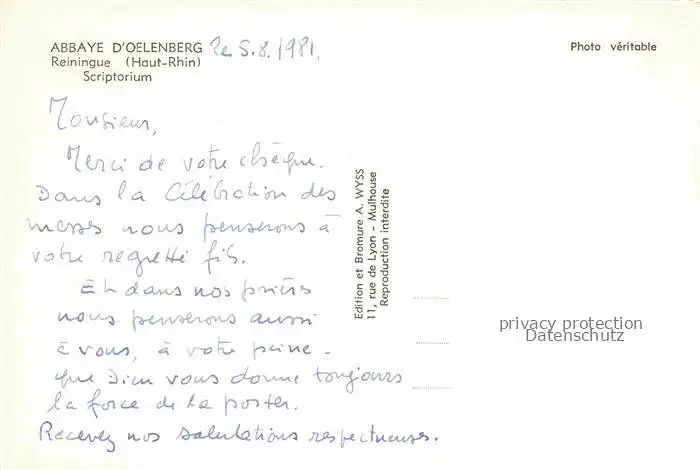 ABBAYE D'OELENBERG le 5.8.1981.
Reiningue (Haut-Rhin)
Scriptorium
Photo véritable
Monsieur,
Merci de votre chèque.
Dans la Célébration des
messes nous penserons à
votre regretté fils.
Et dans nos prières
nous penserons aussi
à vous, à votre peine -
que Dieu vous donne toujours
la force de la porter.
Recevez nos salutations respectueuses.
Edition et Bromure A. WYSS
11, rue de Lyon - Mulhouse
Reproduction interdite
privacy protection
Datenschutz